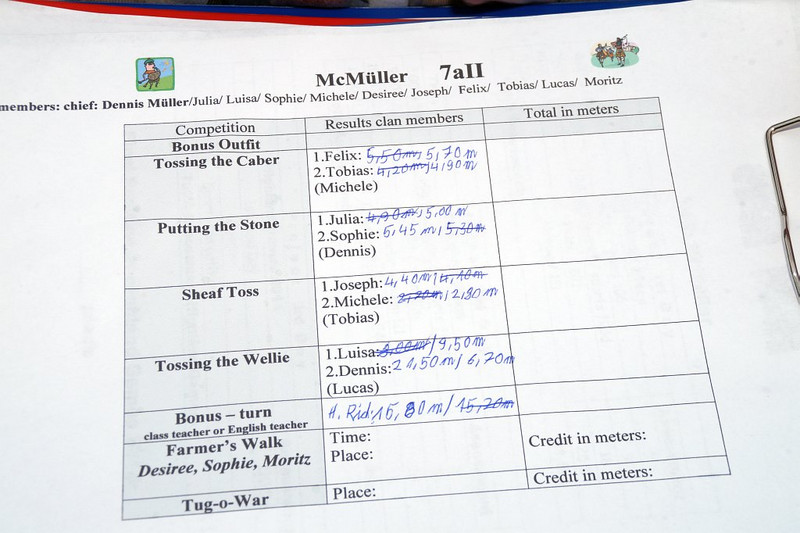 McMüller 7aII
members: chief: Dennis Müller/Julia/ Luisa/ Sophie/ Michele/ Desiree/ Joseph/ Felix/ Tobias/ Lucas/ Moritz
Competition Results clan members Total in meters
Bonus Outfit
Tossing the Caber 1.Felix: 5,50m, 5,70m
2.Tobias: 4,20m/4,90m
(Michele)
Putting the Stone 1.Julia: 4,90m/5,00m
2.Sophie: 5,45m/5,30m
(Dennis)
Sheaf Toss 1.Joseph: 4,40m/4,10m
2.Michele: 2,20m/2,90m
(Tobias)
Tossing the Wellie 1.Luisa: 9,00m/9,50m
2.Dennis: 21,50m/6,70m
(Lucas)
Bonus – turn H. Rid: 15,80m/15,20m
class teacher or English teacher
Farmer's Walk Time: Credit in meters:
Desiree, Sophie, Moritz Place:
Tug-o-War Place: Credit in meters: